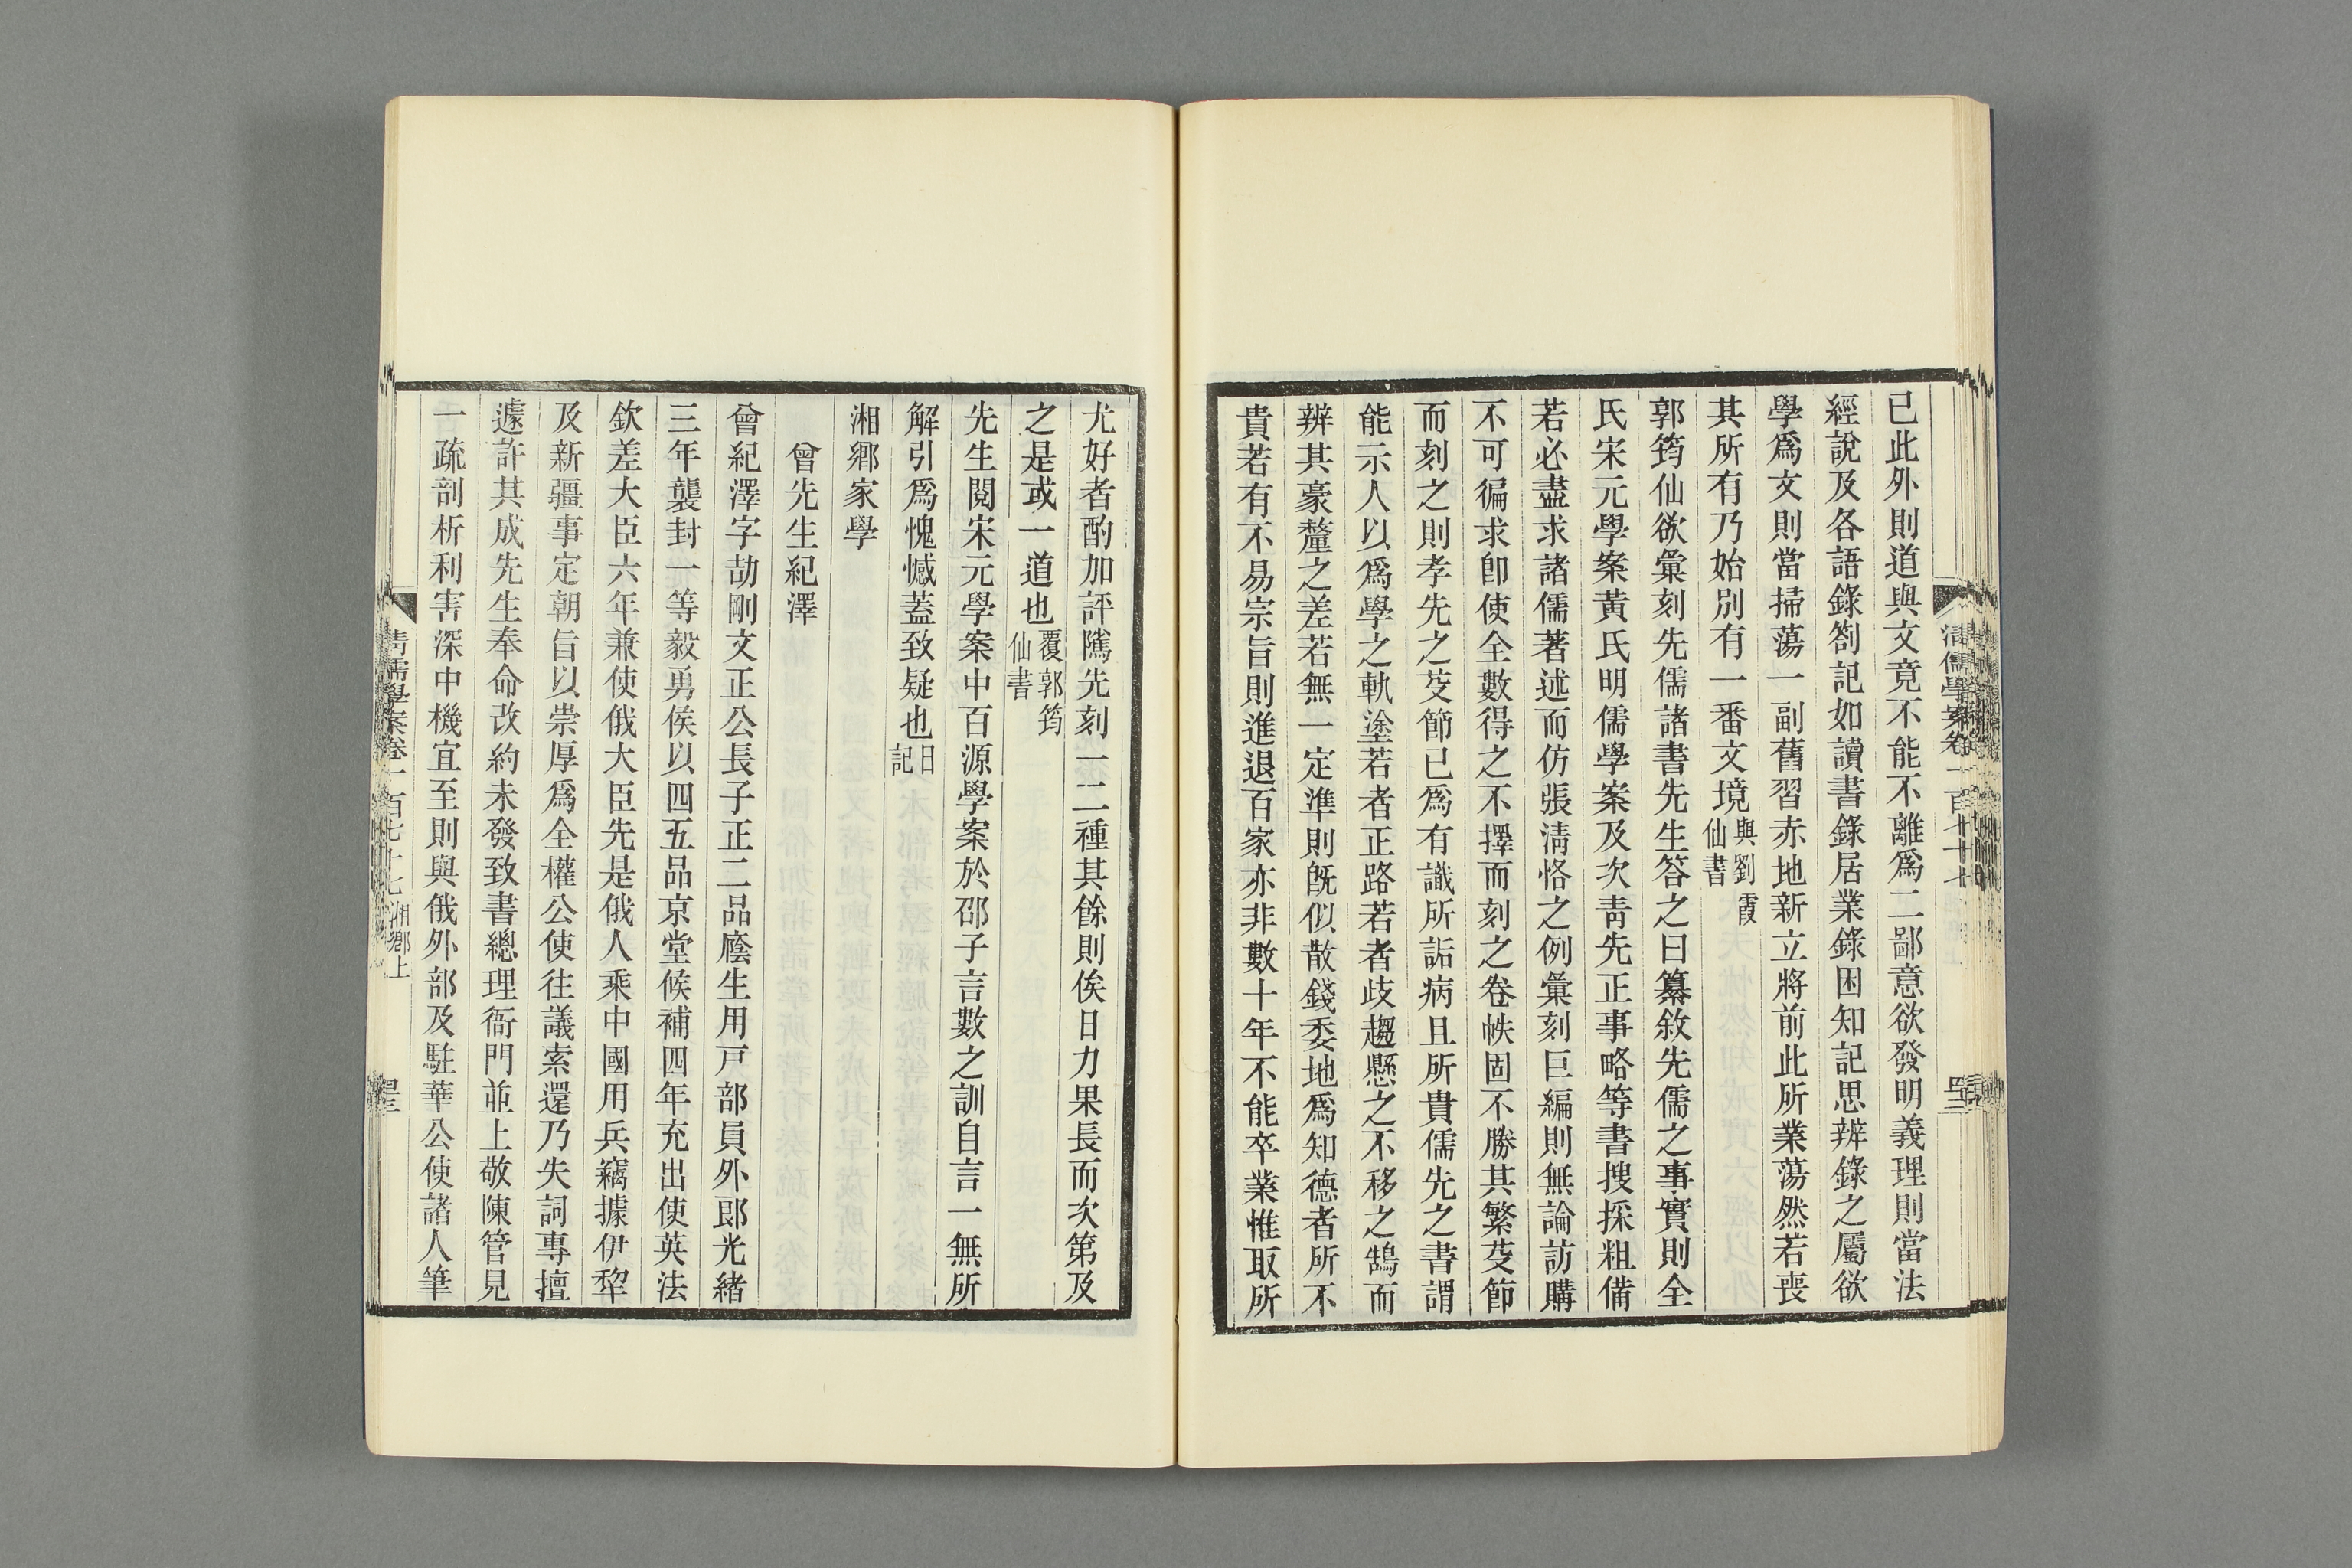 已此外則道與文竟不能不離爲二鄙意欲發明義理則當法
經說及各語錄劄記如讀書錄居業錄困知記思辨錄之屬欲
學爲文則當掃蕩一副舊習赤地新立將前此所業蕩然若喪
其所有乃始別有一番文境與劉霞仙書
郭筠仙欲彙刻先儒諸書先生答之曰纂敘先儒之事實則全
氏宋元學案黃氏明儒學案及次靑先正事略等書搜採粗備
若必盡求諸儒著述而仿張淸恪之例彙刻巨編則無論訪購
不可徧求卽使全數得之不擇而刻之卷帙固不勝其繁芟節
而刻之則孝先之芟節已爲有識所詬病且所貴儒先之書謂
能示人以爲學之軌塗若者正路若者歧趨懸之不移之鵠而
辨其豪釐之差若無一定準則旣似散錢委地爲知德者所不
貴若有不易宗旨則進退百家亦非數十年不能卒業惟取所
淸儒學案卷一百七十七
四二
尤好者酌加評隲先刻一二種其餘則俟日力果長而次第及
之是或一道也覆郭筠仙書
先生閱宋元學案中百源學案於邵子言數之訓自言一無所
解引爲愧憾蓋致疑也日記
湘鄉家學
曾先生紀澤
曾紀澤字劼剛文正公長子正二品廕生用戶部員外郎光緒
三年襲封一等毅勇侯以四五品京堂候補四年充出使英法
欽差大臣六年兼使俄大臣先是俄人乘中國用兵竊據伊犂
及新疆事定朝旨以崇厚爲全權公使往議索還乃失詞專擅
遽許其成先生奉命改約未發致書總理衙門並上敬陳管見
一疏剖析利害深中機宜至則與俄外部及駐華公使諸人筆
淸儒學案卷一百七十七 湘鄉上
四三